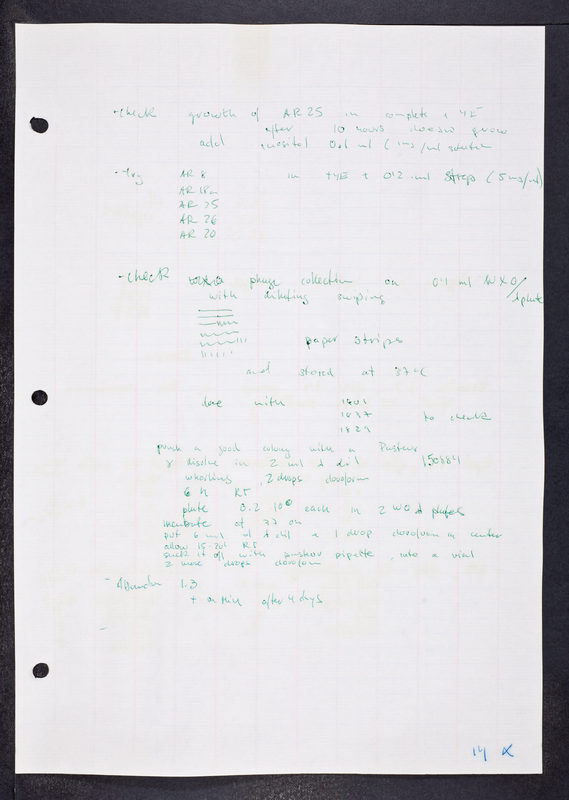 - Check growth of AR 25 in complete + YE
after 10 hours doesn't grow
add inositol 0.1 ml (1mg/ml solution
- Try AR 8 in + YE + 0.2 ml Strep (5 mg/ml)
AR 18a
AR 25
AR 26
AR 20
- Check phage collection on 0.1 ml WX0/plate
with swiping
paper strips
and stored at 37°C
done with 1801
1837 to check
1823
punch a good colony with a Pasteur
& disolve in 2 ml λ dil 150884
whorling, 2 drops cloroform
6 h RT
plate 0.2 10⁰ each in 2 λ plates
incubate at 37 on
put 6 ml λ dil + 1 drop cloroform in center
allow 15-20' RT
suck it off with pasteur pipette, into a vial
2 more drops cloroform
- 1.3
+ after 4 days
14